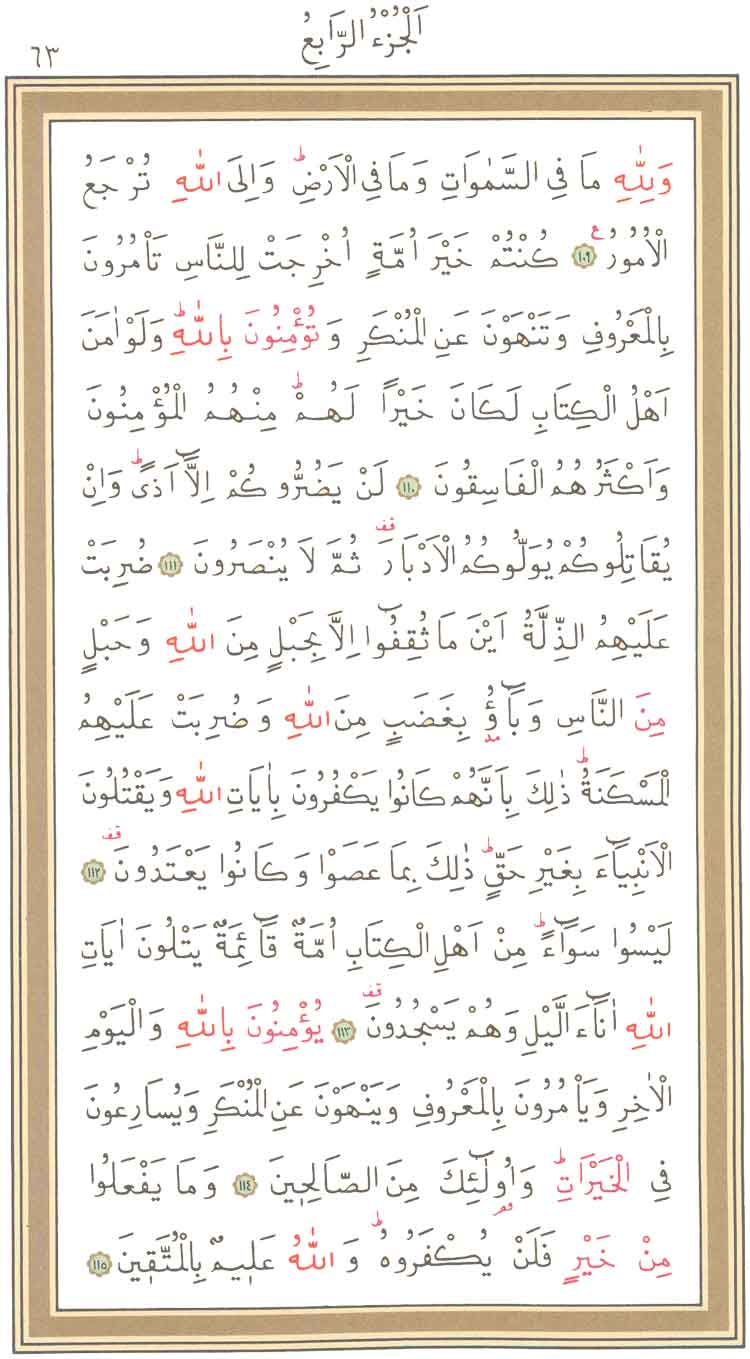 اَلْجُزْءُ الرَّابِعُ
٦٣
وَلِلّٰهِ مَا فِي السَّمٰوَاتِ وَمَا فِي الْاَرْضِۜ وَاِلَى اللّٰهِ تُرْجَعُ
الْاُمُورُ۟ ﴿١٠٩﴾ كُنْتُمْ خَيْرَ اُمَّةٍ اُخْرِجَتْ لِلنَّاسِ تَأْمُرُونَ
بِالْمَعْرُوفِ وَتَنْهَوْنَ عَنِ الْمُنْكَرِ وَتُؤْمِنُونَ بِاللّٰهِۜ وَلَوْ اٰمَنَ
اَهْلُ الْكِتَابِ لَكَانَ خَيْراً لَهُمْۜ مِنْهُمُ الْمُؤْمِنُونَ
وَاَكْثَرُهُمُ الْفَاسِقُونَ ﴿١١٠﴾ لَنْ يَضُرُّوكُمْ اِلَّٓا اَذًىۜ وَاِنْ
يُقَاتِلُوكُمْ يُوَلُّوكُمُ الْاَدْبَارَ۠ ثُمَّ لَا يُنْصَرُونَ ﴿١١١﴾ ضُرِبَتْ
عَلَيْهِمُ الذِّلَّةُ اَيْنَ مَا ثُقِفُٓوا اِلَّا بِحَبْلٍ مِنَ اللّٰهِ وَحَبْلٍ
مِنَ النَّاسِ وَبَٓاؤُ۫ بِغَضَبٍ مِنَ اللّٰهِ وَضُرِبَتْ عَلَيْهِمُ
الْمَسْكَنَةُۜ ذٰلِكَ بِاَنَّهُمْ كَانُوا يَكْفُرُونَ بِاٰيَاتِ اللّٰهِ وَيَقْتُلُونَ
الْاَنْبِيَٓاءَ بِغَيْرِ حَقٍّۜ ذٰلِكَ بِمَا عَصَوْا وَكَانُوا يَعْتَدُونَ۠ ﴿١١٢﴾
لَيْسُوا سَوَٓاءًۜ مِنْ اَهْلِ الْكِتَابِ اُمَّةٌ قَٓائِمَةٌ يَتْلُونَ اٰيَاتِ
اللّٰهِ اٰنَٓاءَ الَّيْلِ وَهُمْ يَسْجُدُونَ۠ ﴿١١٣﴾ يُؤْمِنُونَ بِاللّٰهِ وَالْيَوْمِ
الْاٰخِرِ وَيَأْمُرُونَ بِالْمَعْرُوفِ وَيَنْهَوْنَ عَنِ الْمُنْكَرِ وَيُسَارِعُونَ
فِي الْخَيْرَاتِۜ وَاُو۬لٰٓئِكَ مِنَ الصَّالِح۪ينَ ﴿١١٤﴾ وَمَا يَفْعَلُوا
مِنْ خَيْرٍ فَلَنْ يُكْفَرُوهُۜ وَاللّٰهُ عَل۪يمٌ بِالْمُتَّق۪ينَ ﴿١١٥﴾